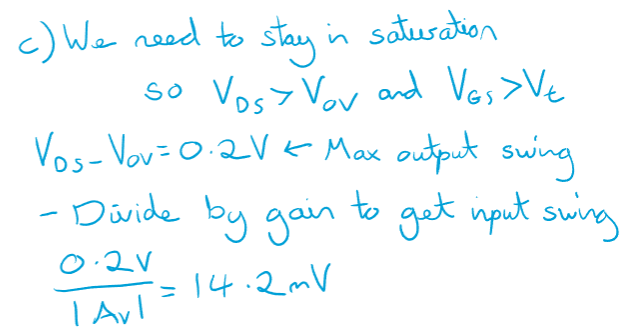 c) We need to stay in saturation
so V_DS > V_OV and V_GS > V_t
V_DS - V_OV = 0.2V ← Max output swing
- Divide by gain to get input swing
0.2V / |A_v| = 14.2mV